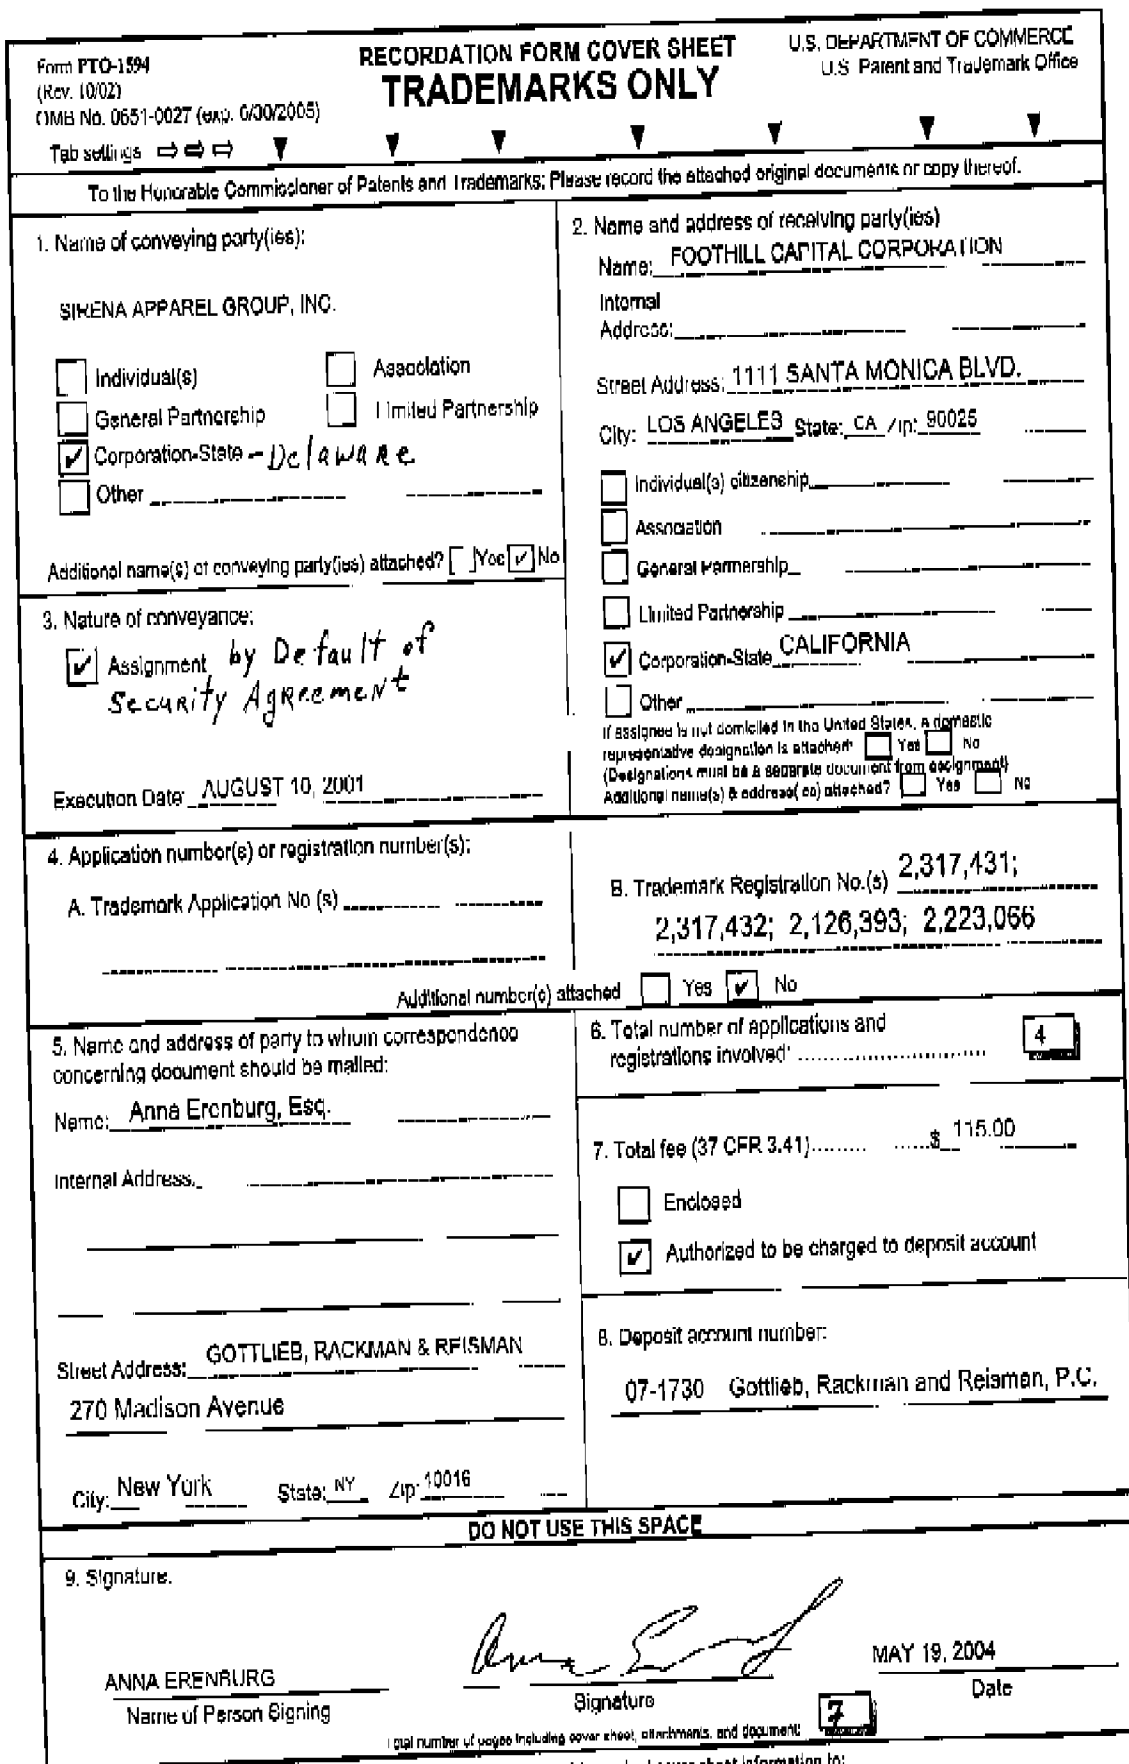 Form PTO-1594
(Rev. 10/02)
OMB No. 0651-0027 (exp. 6/30/2005)
RECORDATION FORM COVER SHEET
TRADEMARKS ONLY
U.S. DEPARTMENT OF COMMERCE
U.S. Patent and Trademark Office
Tab settings ⇨ ⇨ ⇨ ▼ ▼ ▼ ▼ ▼ ▼ ▼
To the Honorable Commissioner of Patents and Trademarks: Please record the attached original documents or copy thereof.
1. Name of conveying party(ies):
SIRENA APPAREL GROUP, INC.
Individual(s)
Association
General Partnership
Limited Partnership
Corporation-State - Delaware
Other
Additional name(s) of conveying party(ies) attached? Yes No
2. Name and address of receiving party(ies)
Name: FOOTHILL CAPITAL CORPORATION
Internal
Address:
Street Address: 1111 SANTA MONICA BLVD.
City: LOS ANGELES State: CA Zip: 90025
Individual(s) citizenship
Association
General Partnership
Limited Partnership
Corporation-State CALIFORNIA
Other
If assignee is not domiciled in the United States, a domestic
representative designation is attached: Yes No
(Designations must be a separate document from assignment)
Additional name(s) & address(es) attached? Yes No
3. Nature of conveyance:
Assignment by Default of
Security Agreement
Execution Date: AUGUST 10, 2001
4. Application number(s) or registration number(s):
A. Trademark Application No.(s)
B. Trademark Registration No.(s) 2,317,431;
2,317,432; 2,126,393; 2,223,066
Additional number(s) attached Yes No
5. Name and address of party to whom correspondence
concerning document should be mailed:
Name: Anna Erenburg, Esq.
Internal Address:
Street Address: GOTTLIEB, RACKMAN & REISMAN
270 Madison Avenue
City: New York State: NY Zip: 10016
6. Total number of applications and
registrations involved: 4
7. Total fee (37 CFR 3.41) $ 115.00
Enclosed
Authorized to be charged to deposit account
8. Deposit account number:
07-1730 Gottlieb, Rackman and Reisman, P.C.
DO NOT USE THIS SPACE
9. Signature.
ANNA ERENBURG
Name of Person Signing
Signature
MAY 19, 2004
Date
Total number of pages including cover sheet, attachments, and document: 7
cover sheet information to: